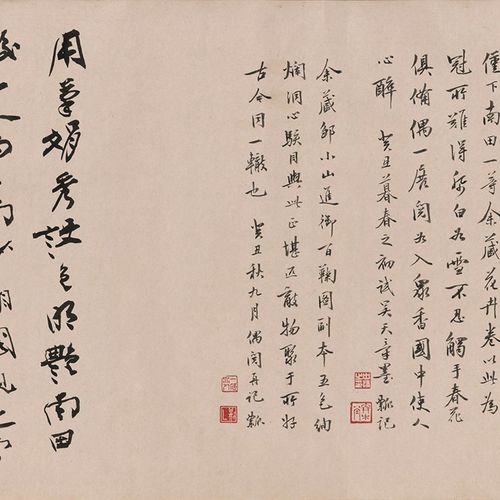 僅下南田一等余藏花卉卷以此為
冠所難得蕊白如雪不忍觸手春花
俱備偶一展閱如入眾香國中使人
心醉 癸丑暮春之初試吳天章墨瓢記
余藏鄒小山進御百菊圖副本五色絢
爛洞心駭目與此正堪匹敵物聚于所好
古今同一轍也 癸丑秋九月偶閱再記瓢
用筆娟秀設色明艷南田